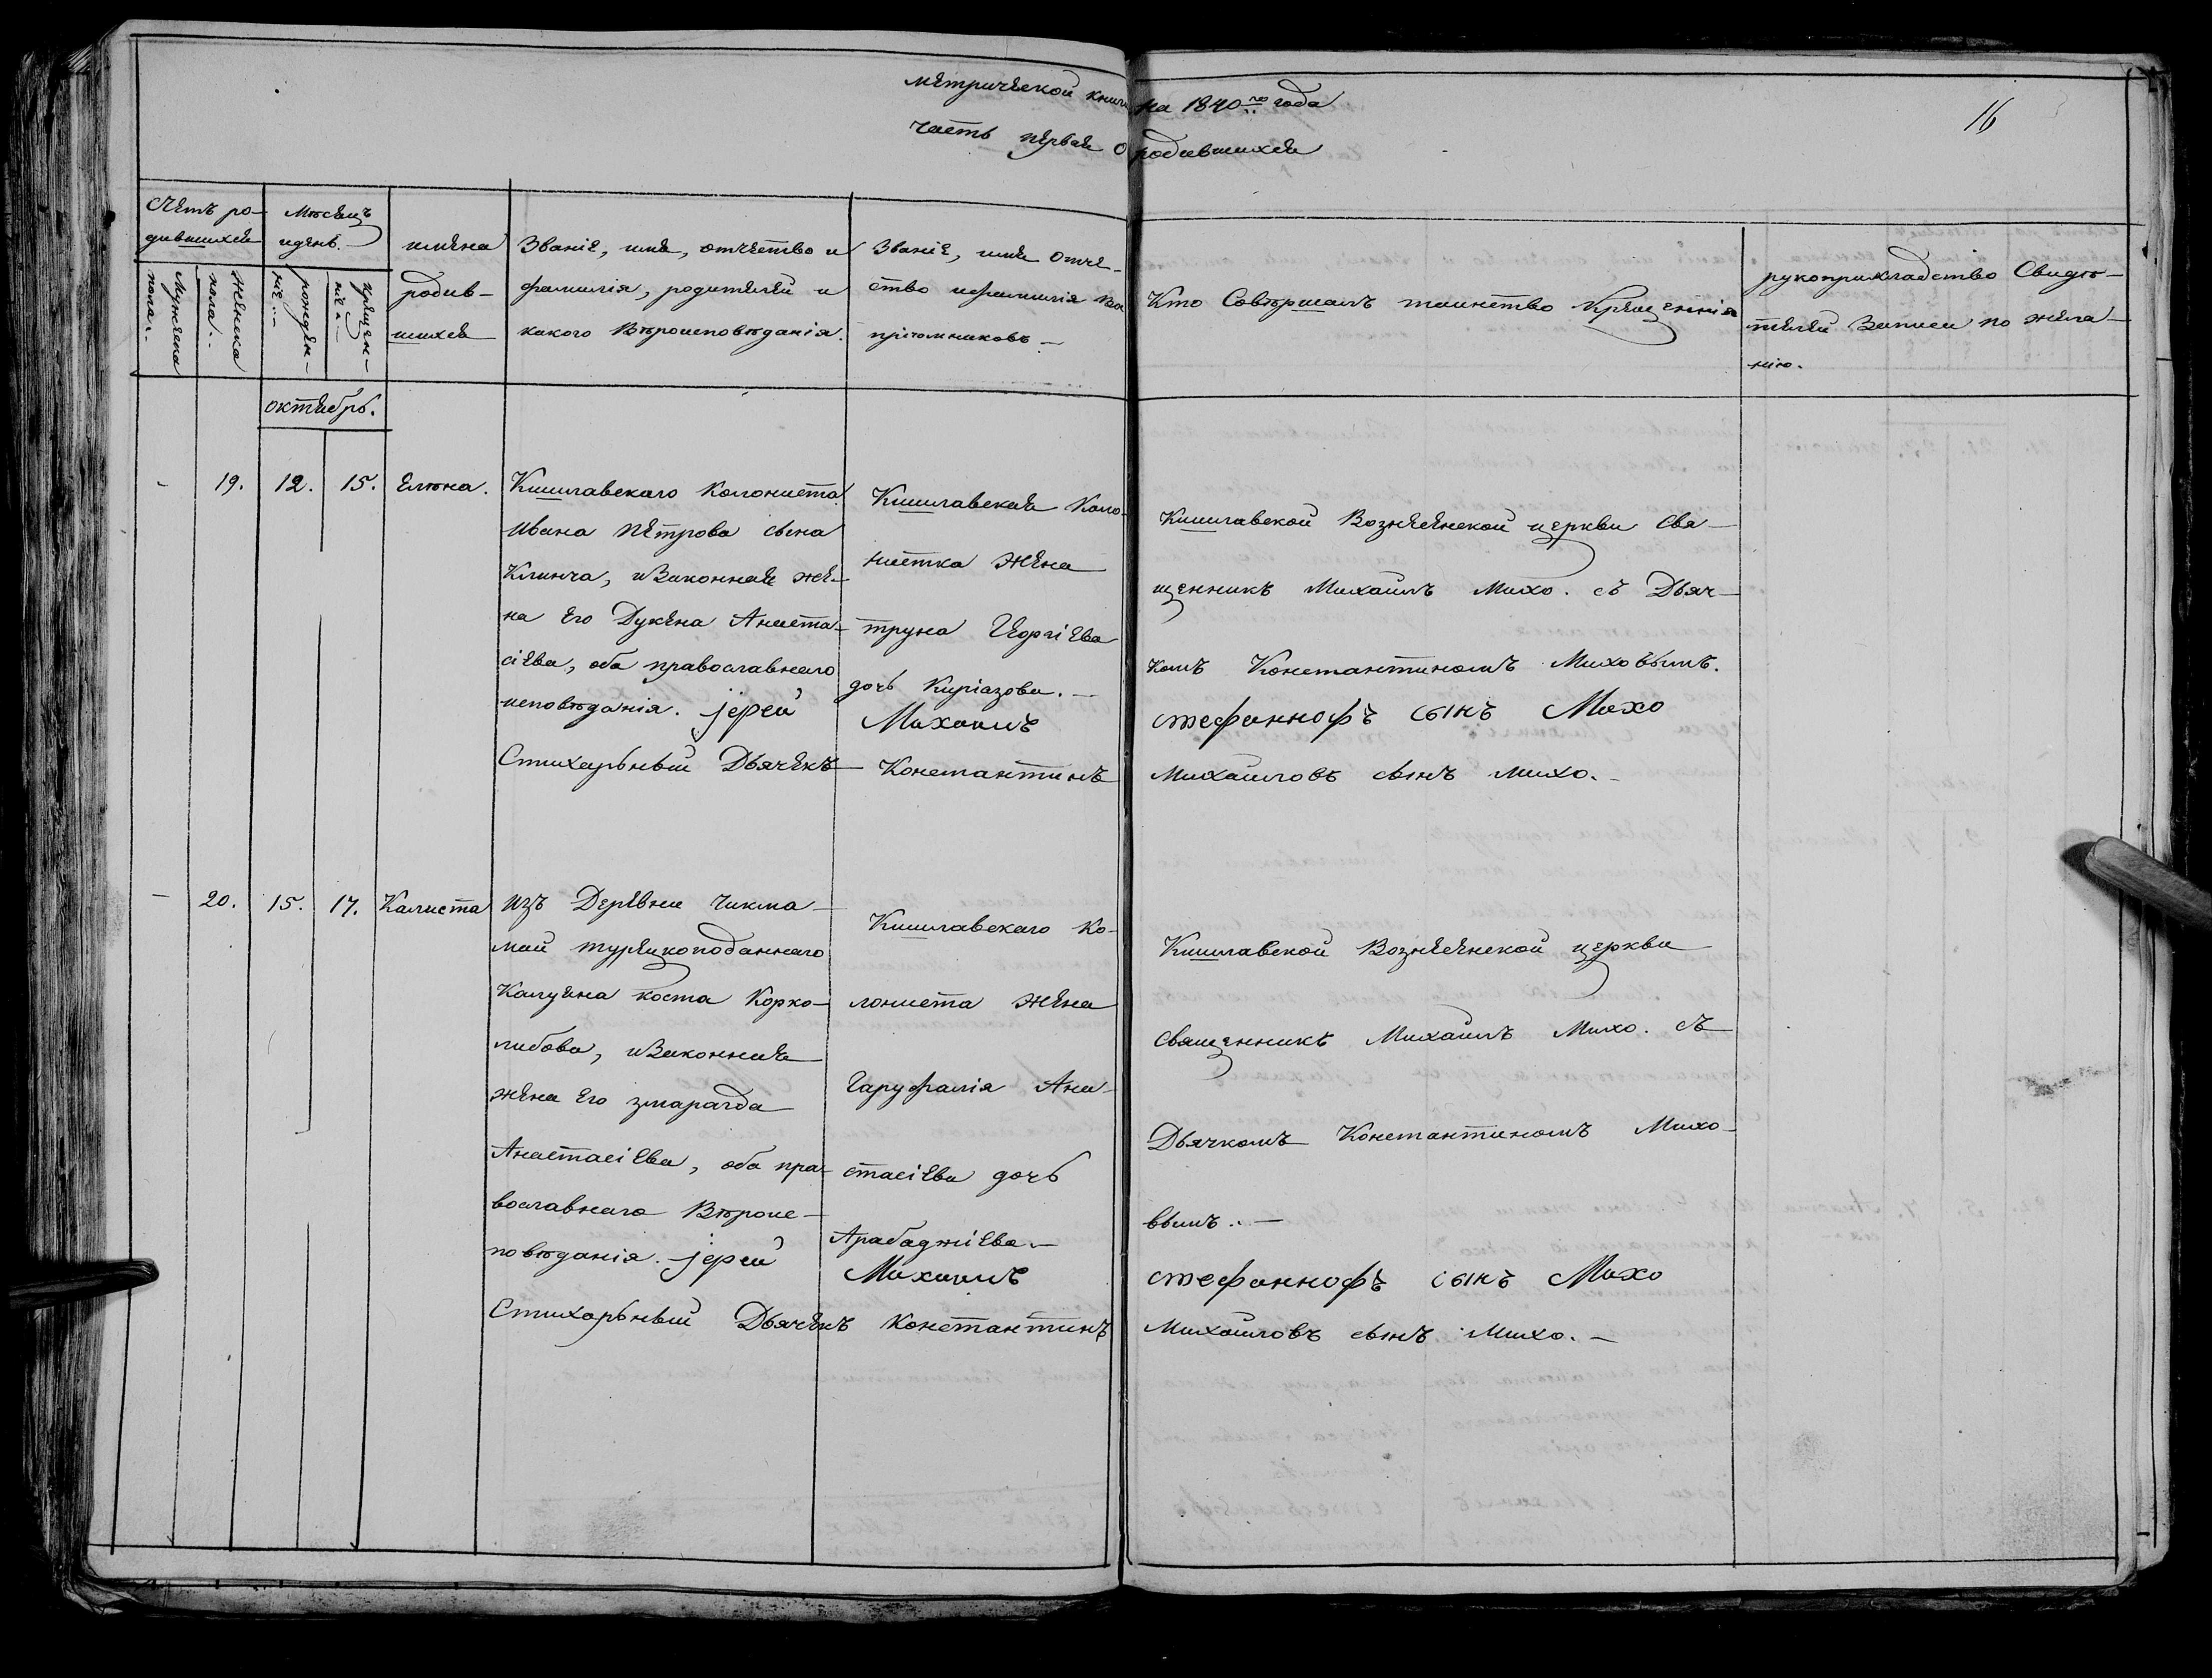 метрической книги на 1840го года
часть первая О родившихся
16
Счетъ ро-
дившихся
Мужеска
пола.
женска
пола.
Мѣсяцъ
и день.
рожден-
ніе
крещен-
ніе
имена
родив-
шихся
Званіе, имя, отчество и
фамилія, родителей и
какого Вѣроисповѣданія.
Званіе, имя отче-
ство и фамилія вос
пріемниковъ
Кто Совѣршалъ таинство Крещеннія
рукоприкладство Свидѣ-
телей Записи по жела-
нію.
октябрь.
- 19. 12. 15. Елѣна.
Кишлавскаго Колониста
Ивана Петрова сына
Клинча, и Законная же-
на Его Дукена Анаста-
сіева, оба православнаго
исповѣданія. јерей
Стихарьный Дьячекъ
Кишлавская Коло-
нистка жена
труна Георгіева
дочь Киріазова.
Михаилъ
Константинъ
Кишлавской Вознесенской церкви Свя-
щенникъ Михаилъ Михо. съ Дьяч-
комъ Константиномъ Миховымъ.
стефаннофъ сынъ Михо
Михаиловъ сынъ Михо.
- 20. 15. 17. Калиста
Изъ Деревни Чикма-
май турецкоподаннаго
Калуена Коста Корко-
либова, и Законная
жена Его Змарагда
Анастасіева, оба пра-
вославнаго Вѣроис-
повѣданія. јерей
Стихарьный Дьячекъ
Кишлавскаго Ко-
лониста жена
Гаруфалія Ана-
стасіева дочь
Арабаджіева.
Михаилъ
Константинъ
Кишлавской Вознесенской церкви
священникъ Михаилъ Михо. съ
Дьячкомъ Константиномъ Михо-
вымъ.
стефаннофъ сынъ Михо
Михаиловъ сынъ Михо.